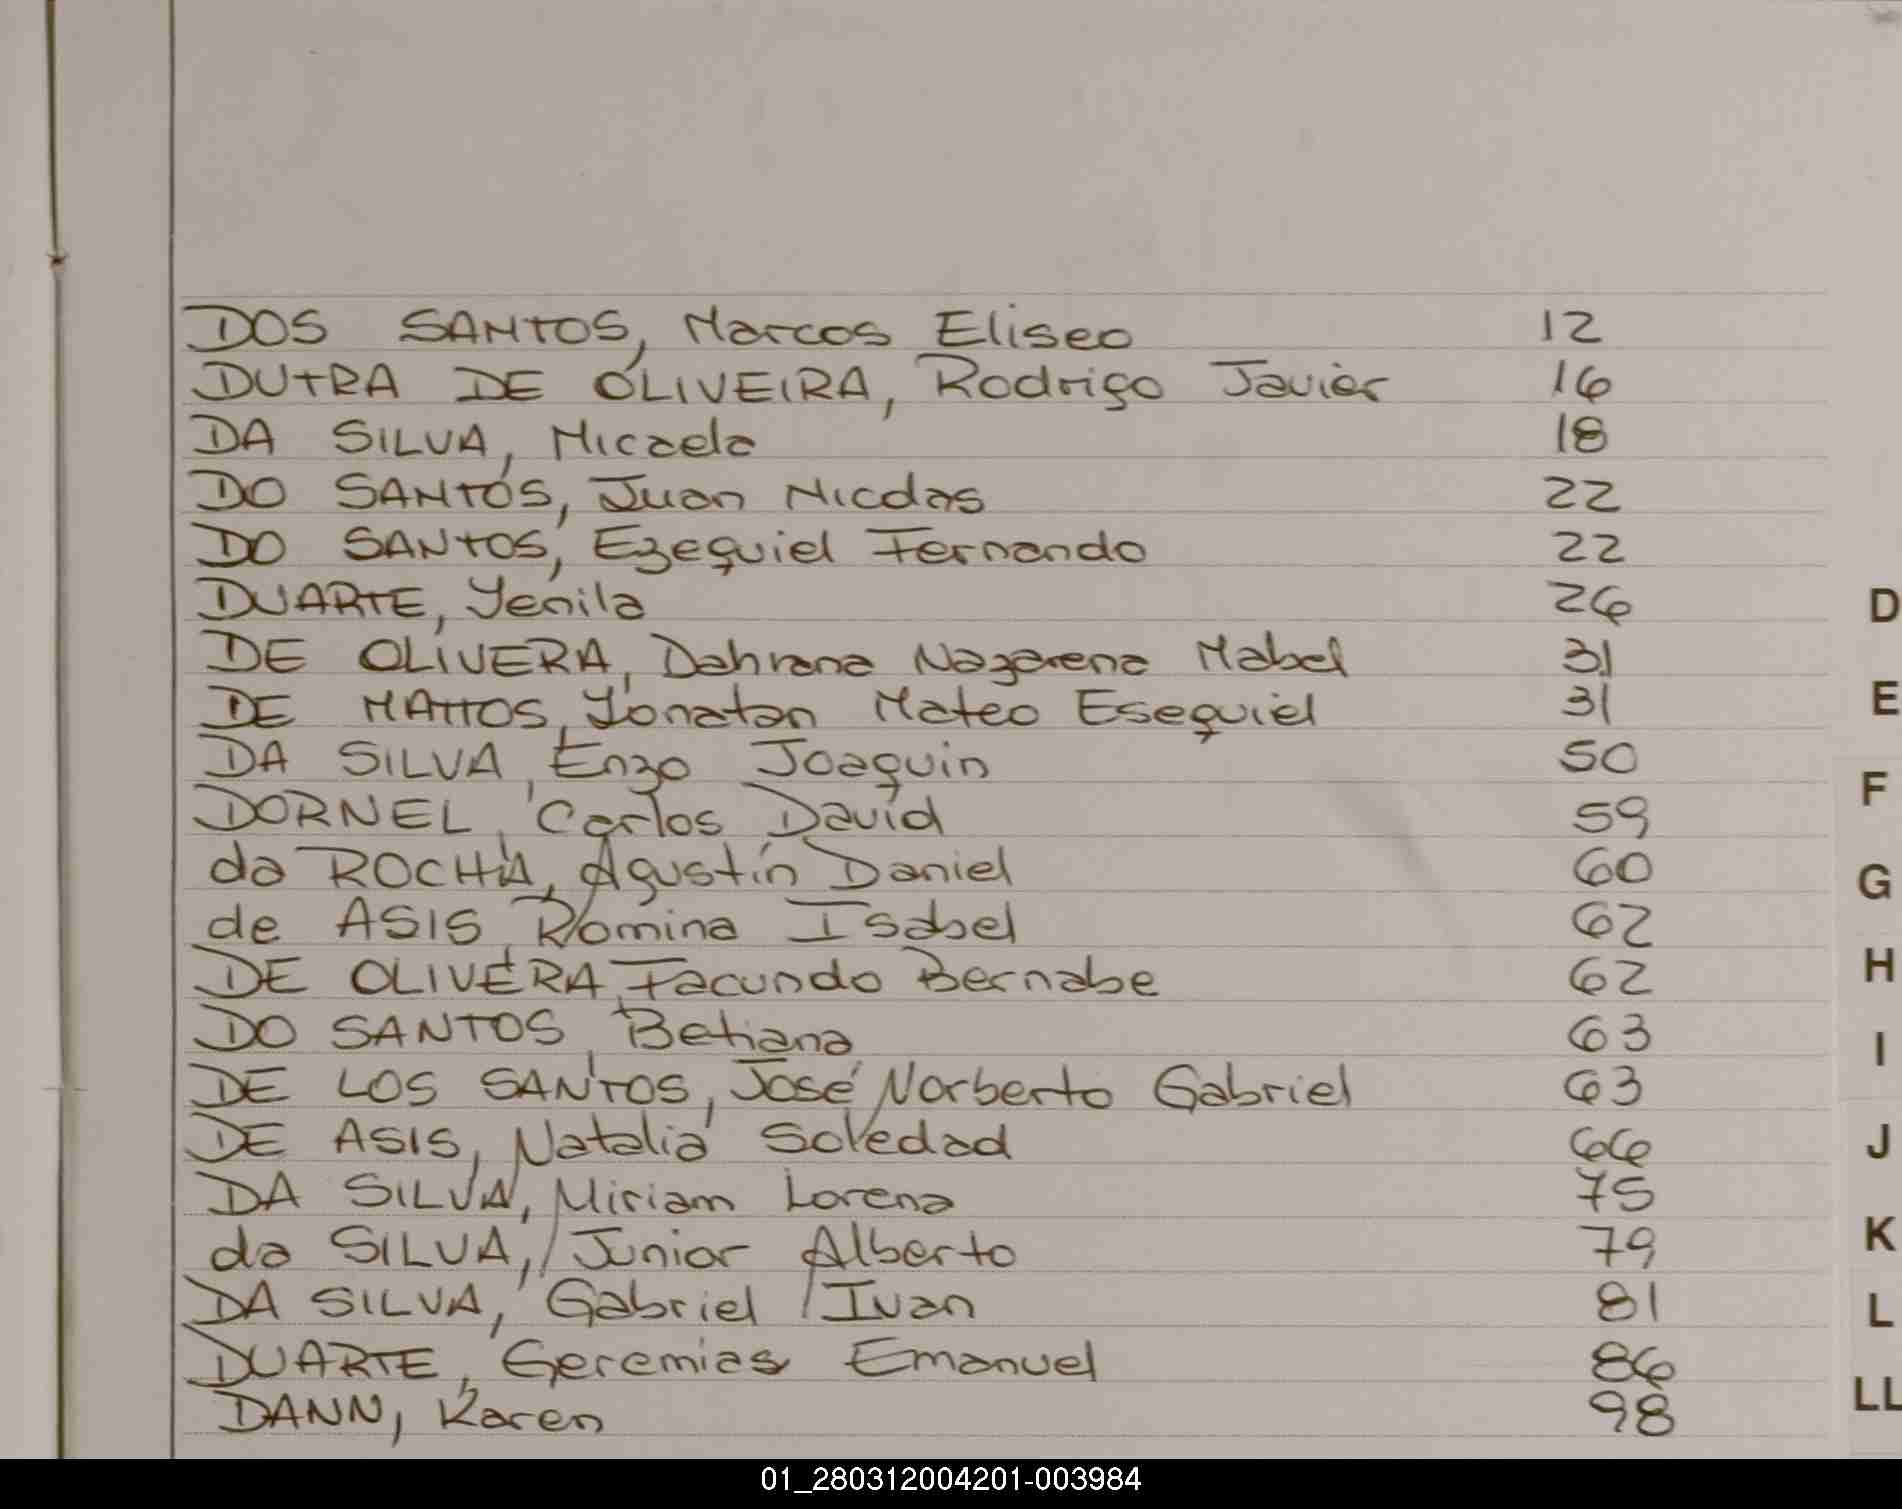 DOS SANTOS, Marcos Eliseo 12
DUTRA DE OLIVEIRA, Rodrigo Javier 16
DA SILVA, Micaela 18
DO SANTOS, Juan Nicolas 22
DO SANTOS, Ezequiel Fernando 22
DUARTE, Yenila 26
D
DE OLIVERA, Dahrana Nazarena Mabel 31
DE MATTOS, Yonatan Mateo Esequiel 31
E
DA SILVA, Enzo Joaquin 50
F
DORNEL, Carlos David 59
da ROCHA, Agustín Daniel 60
G
de ASIS, Romina Isabel 62
DE OLIVERA, Facundo Bernabe 62
H
DO SANTOS, Betiana 63
I
DE LOS SANTOS, José Norberto Gabriel 63
DE ASIS, Natalia Soledad 66
J
DA SILVA, Miriam Lorena 75
da SILVA, Junior Alberto 79
K
DA SILVA, Gabriel Ivan 81
L
DUARTE, Geremias Emanuel 86
LL
DANN, Karen 98
01_280312004201-003984